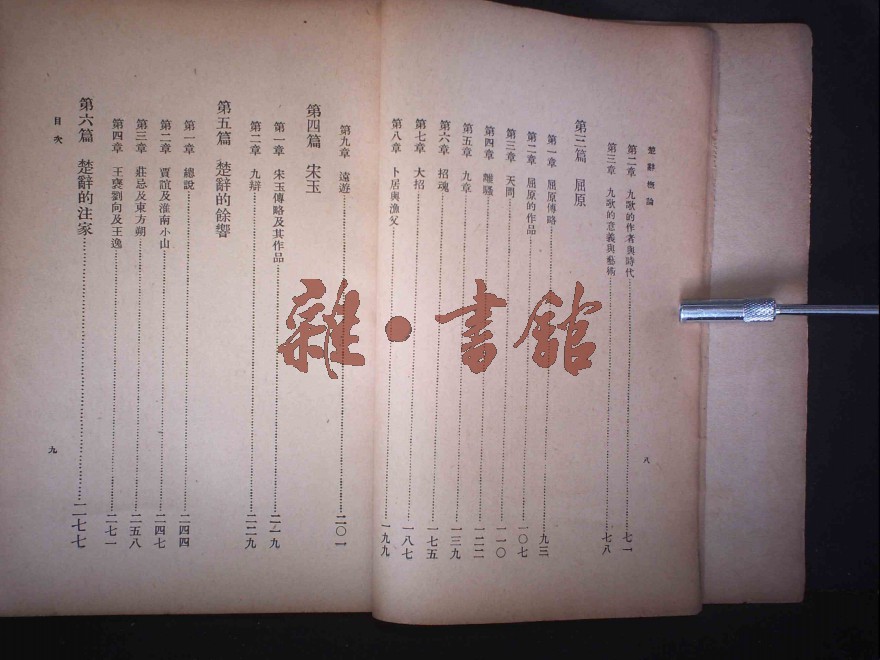 楚辭概論
第二章 九歌的作者與時代……七一
第三章 九歌的意義與藝術……七八
第三篇 屈原
第一章 屈原傳略……九三
第二章 屈原的作品……一〇七
第三章 天問……一一〇
第四章 離騷……一二二
第五章 九章……一三九
第六章 招魂……一七五
第七章 大招……一八七
第八章 卜居與漁父……一九九
八
第九章 遠遊……二〇一
第四篇 宋玉
第一章 宋玉傳略及其作品……二一九
第二章 九辯……二二九
第五篇 楚辭的餘響
第一章 總說……二四四
第二章 賈誼及淮南小山……二四七
第三章 莊忌及東方朔……二五八
第四章 王褒劉向及王逸……二七一
第六篇 楚辭的注家……二七七
目次
九
雜·書館